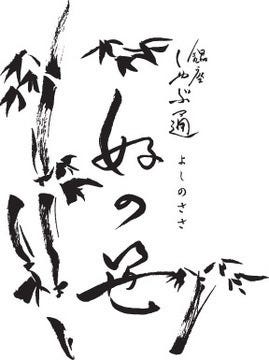 銀座
しゃぶ通
よしのささ
好の笹